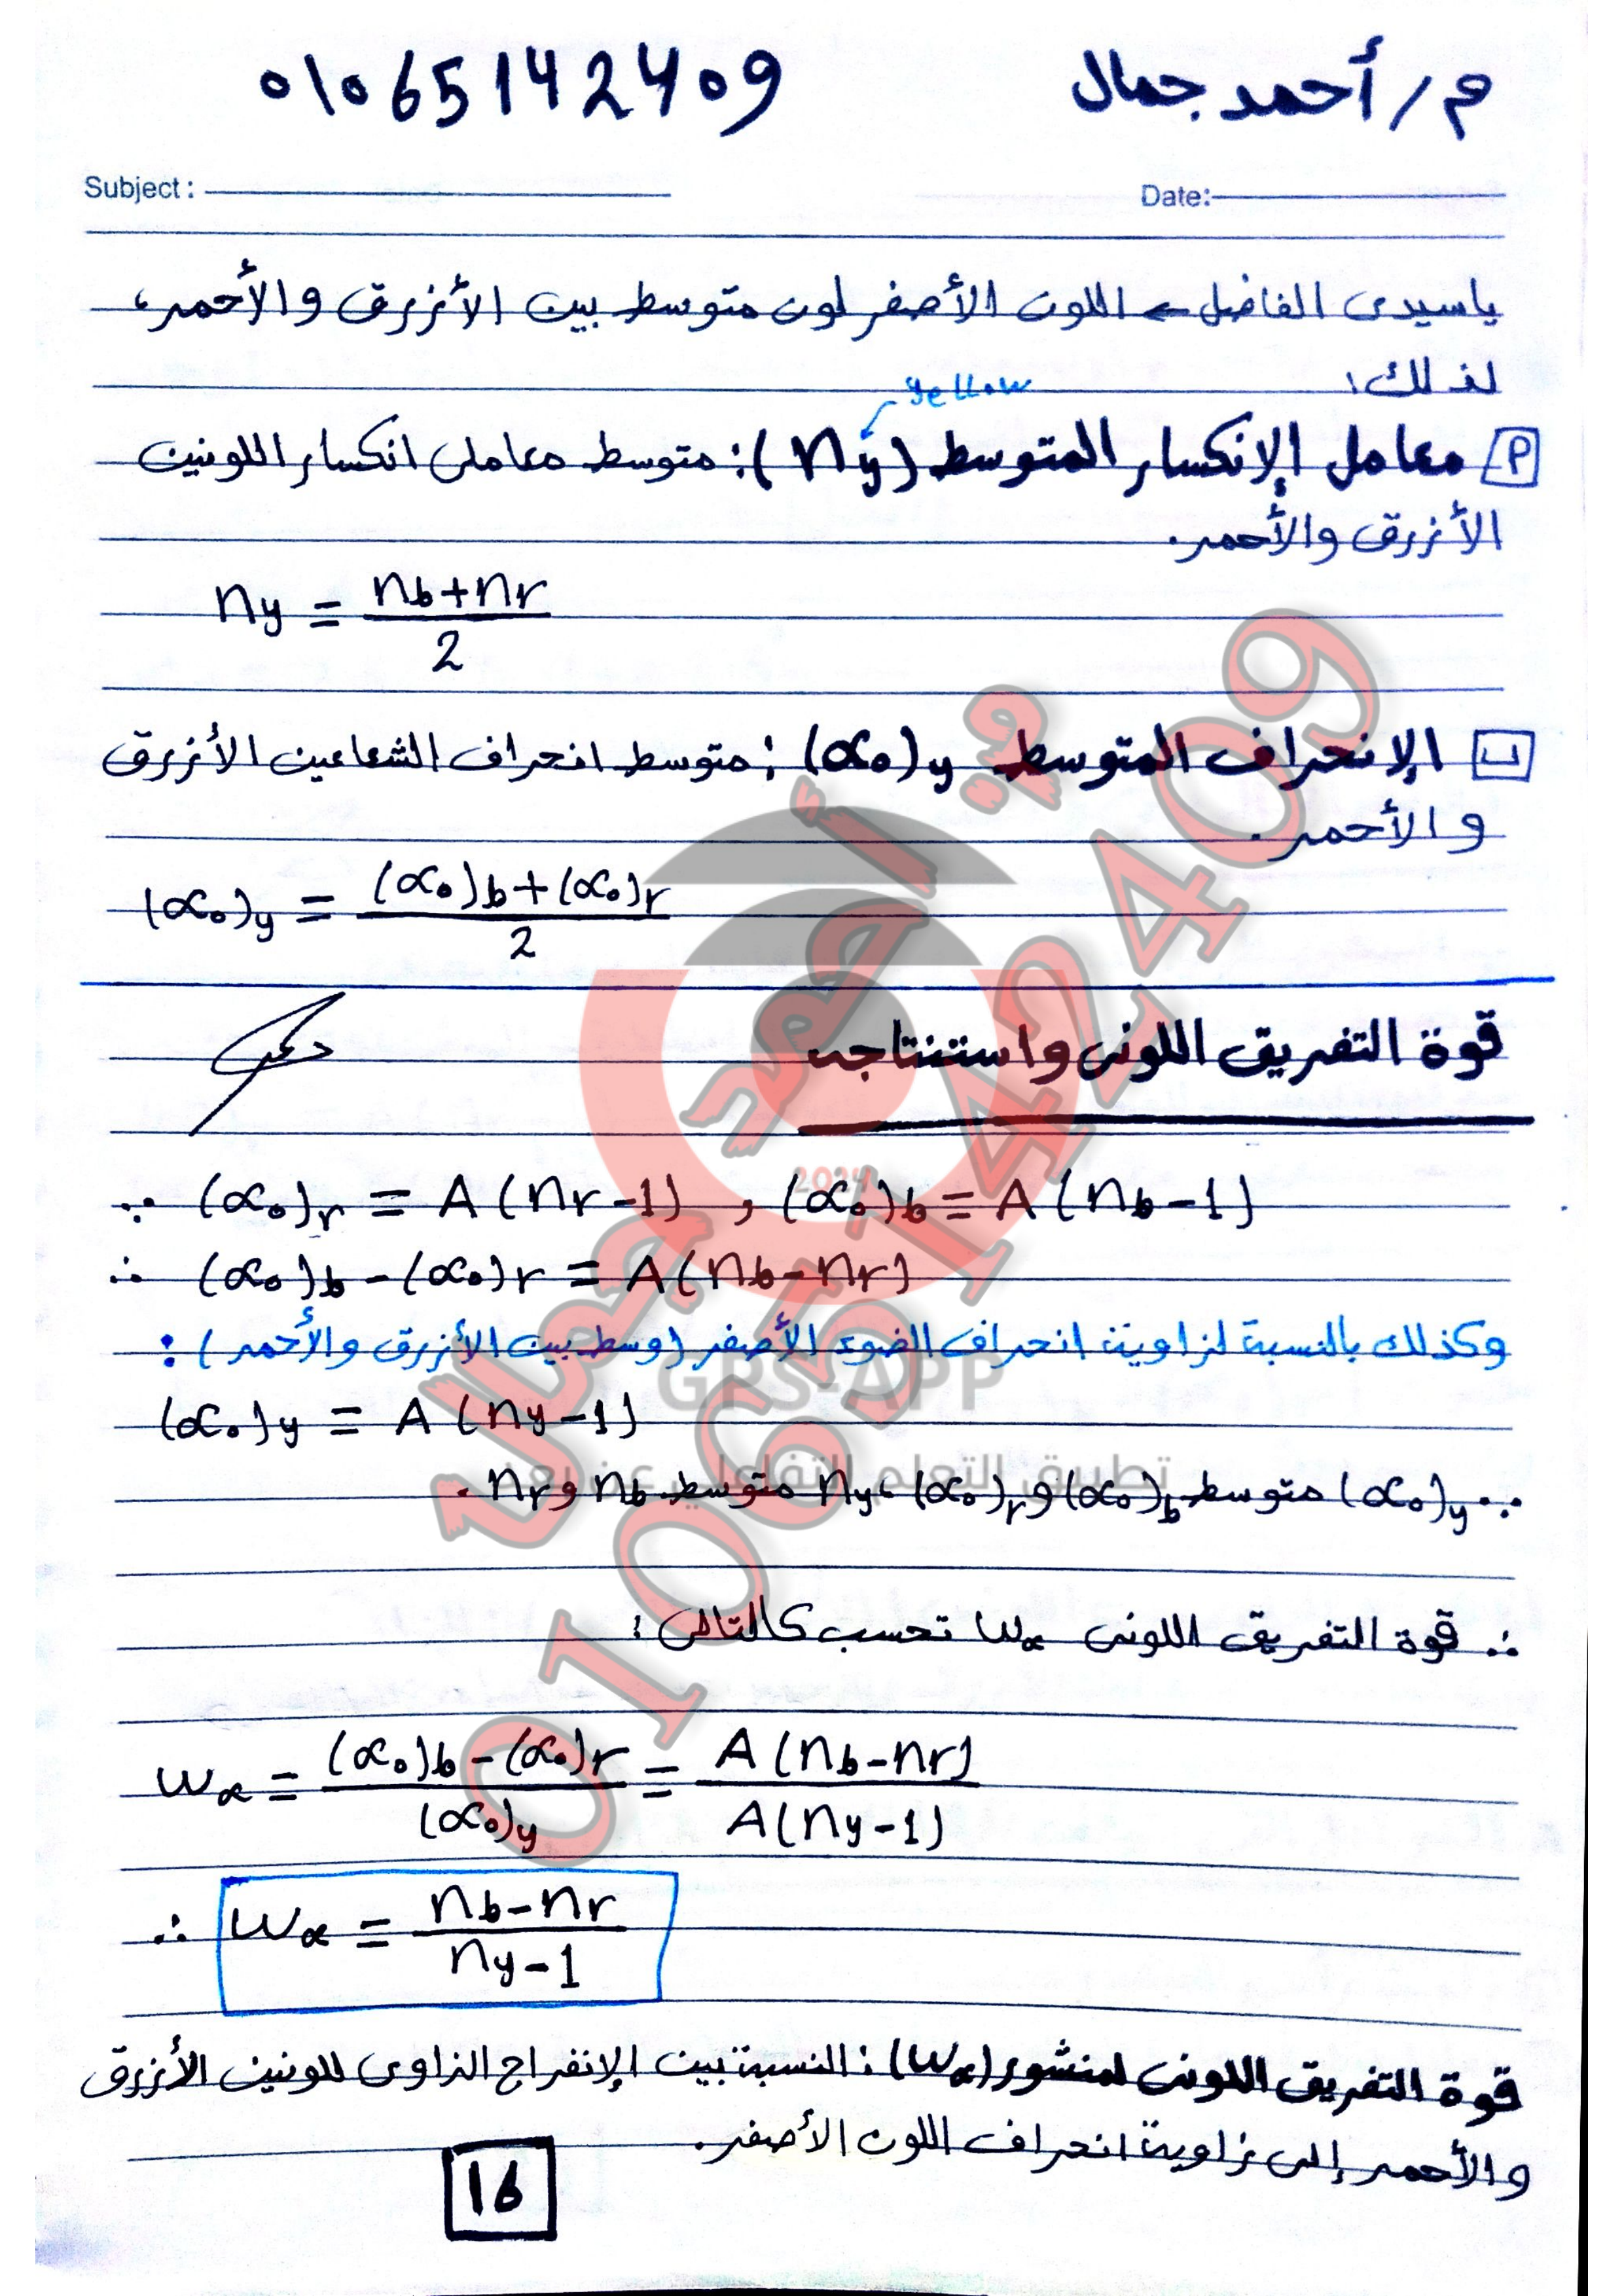 م/ أحمد جمال 01065142409
Subject: Date:
ياسيدى الفاضل ← اللون الأصفر لون متوسط بين الأزرق والأحمر،
لذلك:
yellow
أ معامل الإنكسار المتوسط (ny): متوسط معاملى انكسار اللونين
الأزرق والأحمر.
ny = (nb+nr)/2
ب الإنحراف المتوسط (α₀)y : متوسط انحراف الشعاعين الأزرق
والأحمر.
(α₀)y = ((α₀)b+(α₀)r)/2
قوة التفريق اللونى واستنتاجه
∵ (α₀)r = A(nr-1) , (α₀)b = A(nb-1)
∴ (α₀)b - (α₀)r = A(nb-nr)
وكذلك بالنسبة لزاوية انحراف الضوء الأصفر (وسط بين الأزرق والأحمر):
(α₀)y = A(ny-1)
∵ (α₀)y متوسط (α₀)b و (α₀)r ، ny متوسط nb و nr.
∴ قوة التفريق اللونى ωα تحسب كالتالى:
ωα = ((α₀)b-(α₀)r)/(α₀)y = A(nb-nr)/A(ny-1)
∴ ωα = (nb-nr)/(ny-1)
قوة التفريق اللونى لمنشور (ωα): النسبة بين الإنفراج الزاوى للونين الأزرق
والأحمر إلى زاوية انحراف اللون الأصفر.
16
م/ أحمد جمال
01065142409
2024
GPS-APP
تطبيق التعلم التفاعلي عن بعد